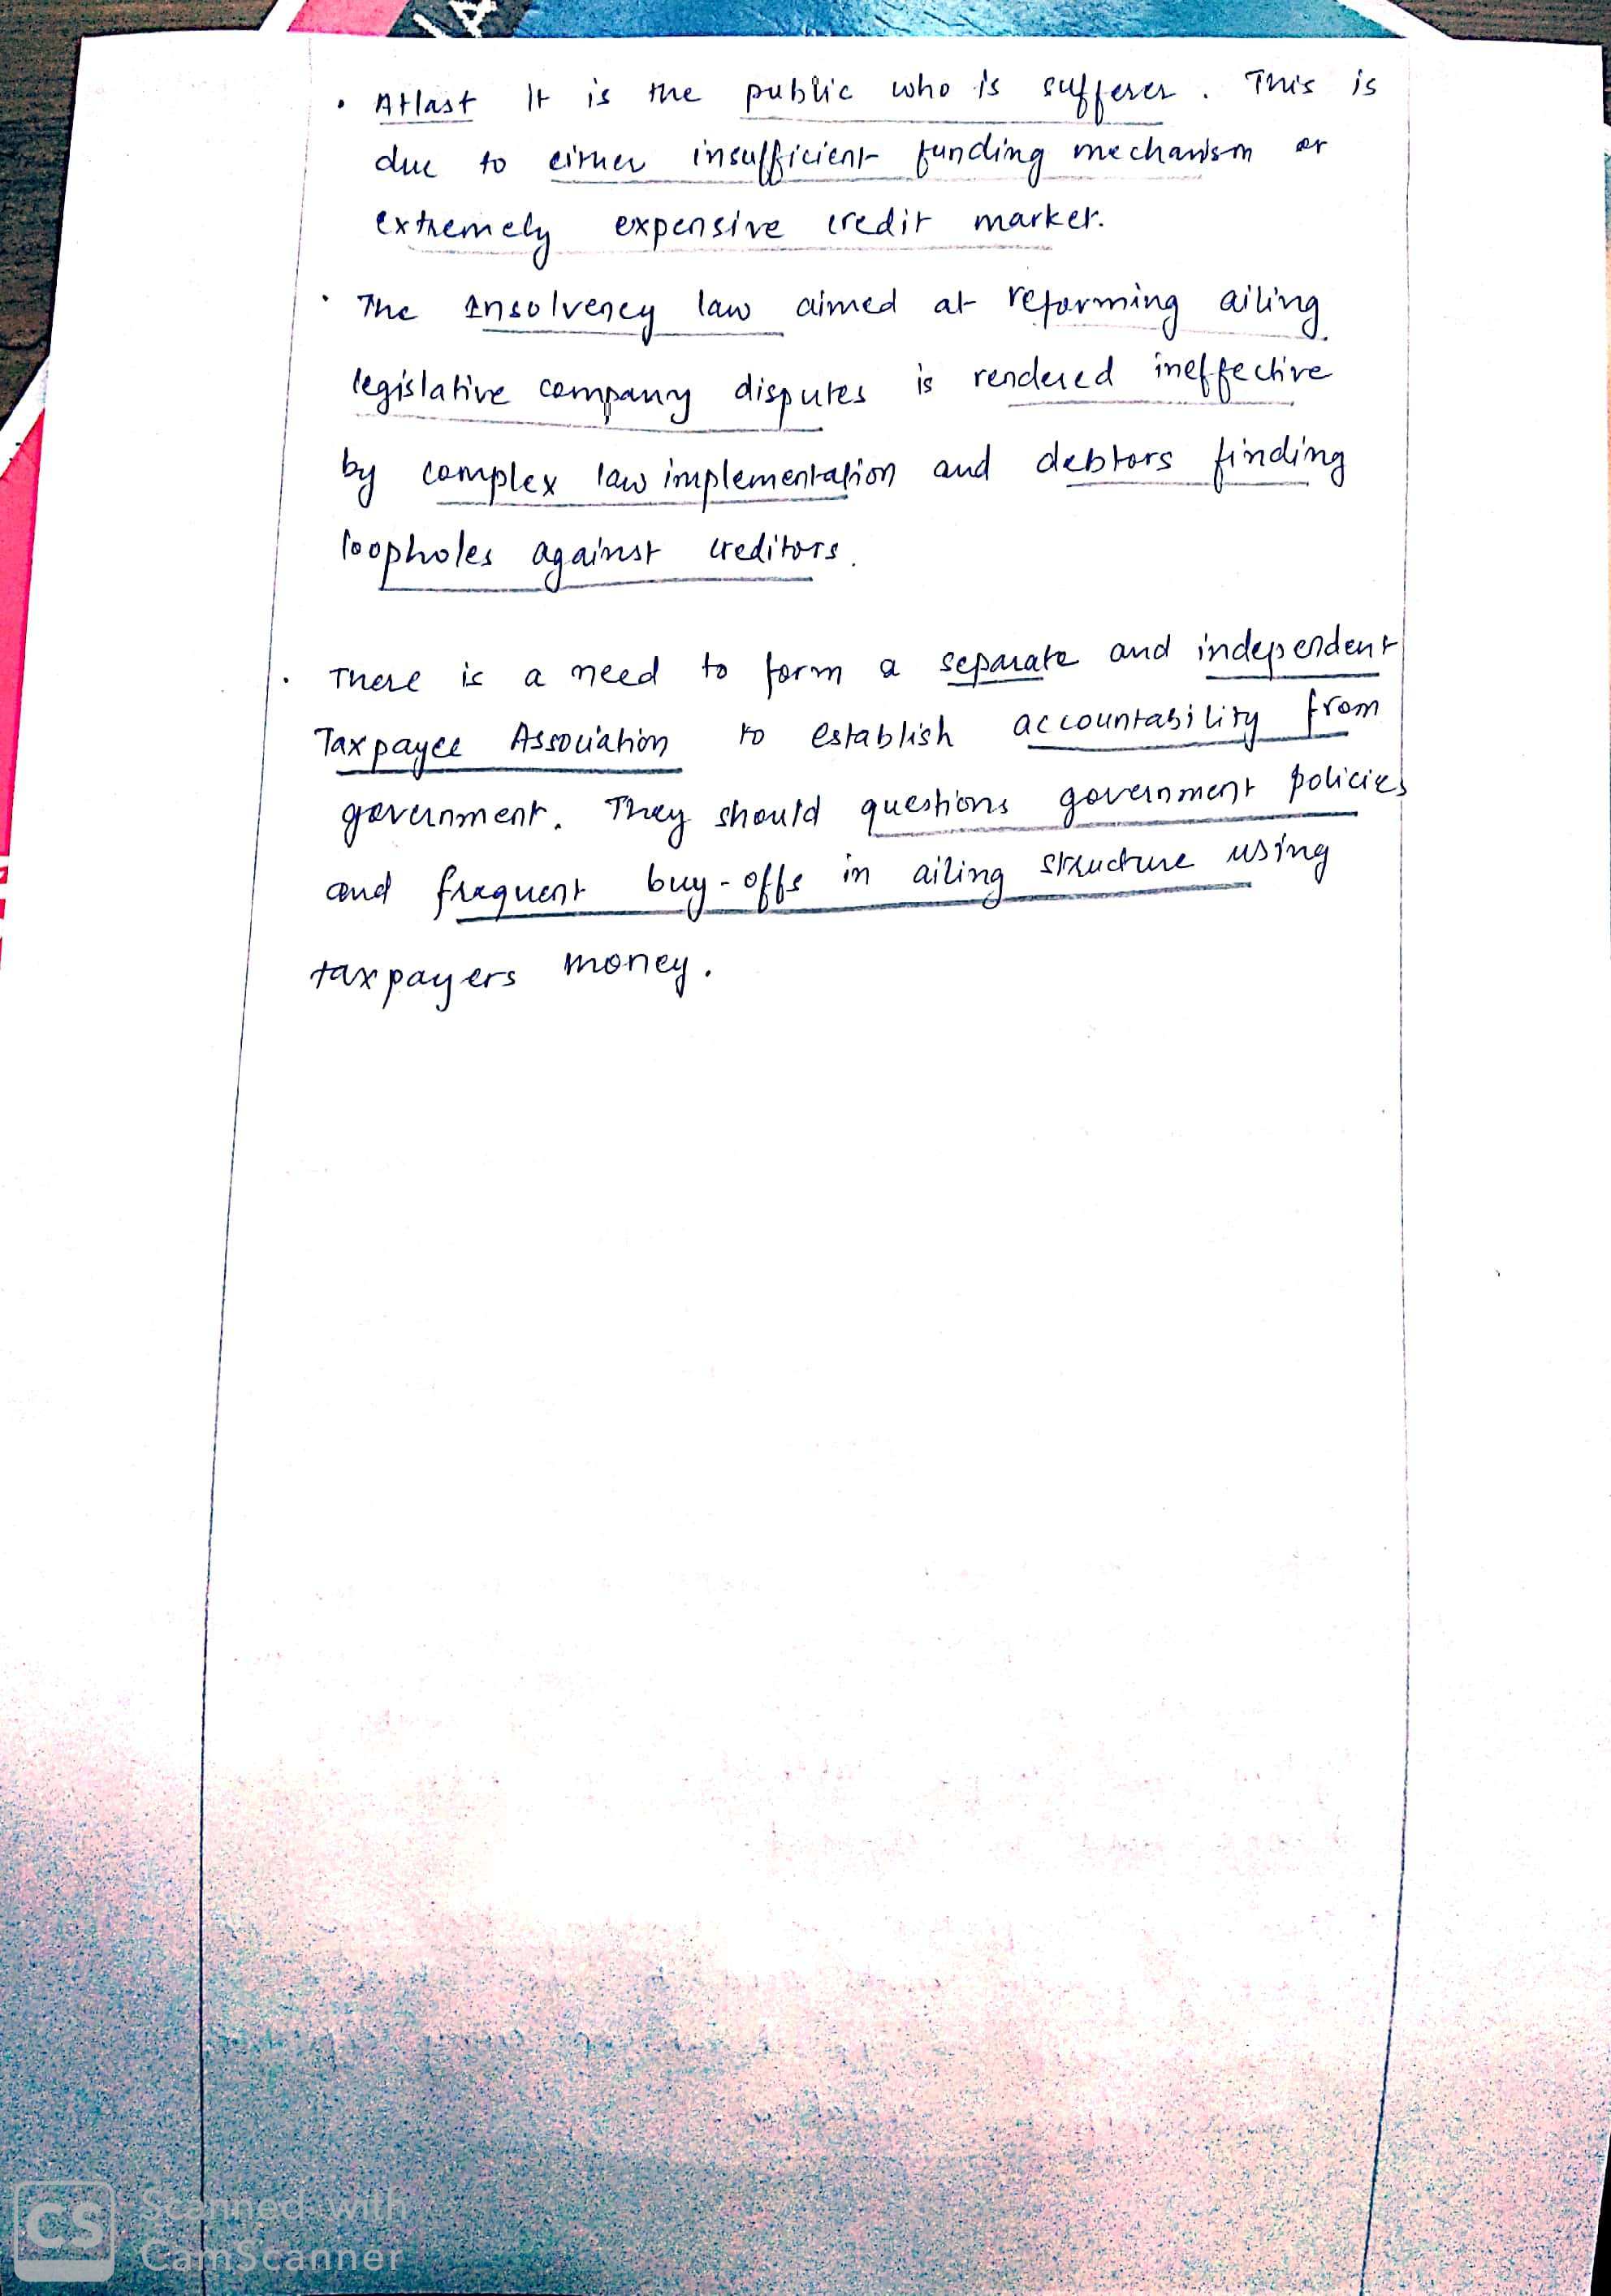 • Atlast It is the public who is sufferer. This is
due to either insufficient funding mechanism or
extremely expensive credit market.
• The Insolvency law aimed at reforming ailing
legislative company disputes is rendered ineffective
by complex law implementation and debtors finding
loopholes against creditors.
• There is a need to form a separate and independent
Taxpayee Association to establish accountability from
government. They should questions government policies
and frequent buy-offs in ailing structure using
taxpayers money.
CS Scanned with
CamScanner